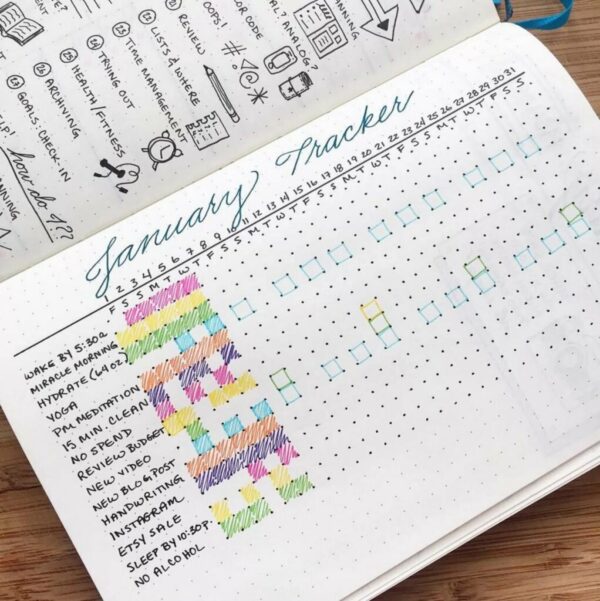 OR CODE
OOPS!
#:@*
REVIEW
LISTS & WHERE
TIME MANAGEMENT
TRYING OUT
HEALTH/FITNESS
ARCHIVING
GOALS: CHECK-IN
how do I??
January Tracker
1 2 3 4 5 6 7 8 9 10 11 12 13 14 15 16 17 18 19 20 21 22 23 24 25 26 27 28 29 30 31
F S S M T W T F S S M T W T F S S M T W T F S S M T W T F S S
WAKE BY 5:30A
MIRACLE MORNING
HYDRATE (64 OZ)
YOGA
PM MEDITATION
15 MIN. CLEAN
NO SPEND
REVIEW BUDGET
NEW VIDEO
NEW BLOG POST
HANDWRITING
INSTAGRAM
ETSY SALE
SLEEP BY 10:30P.
NO ALCOHOL